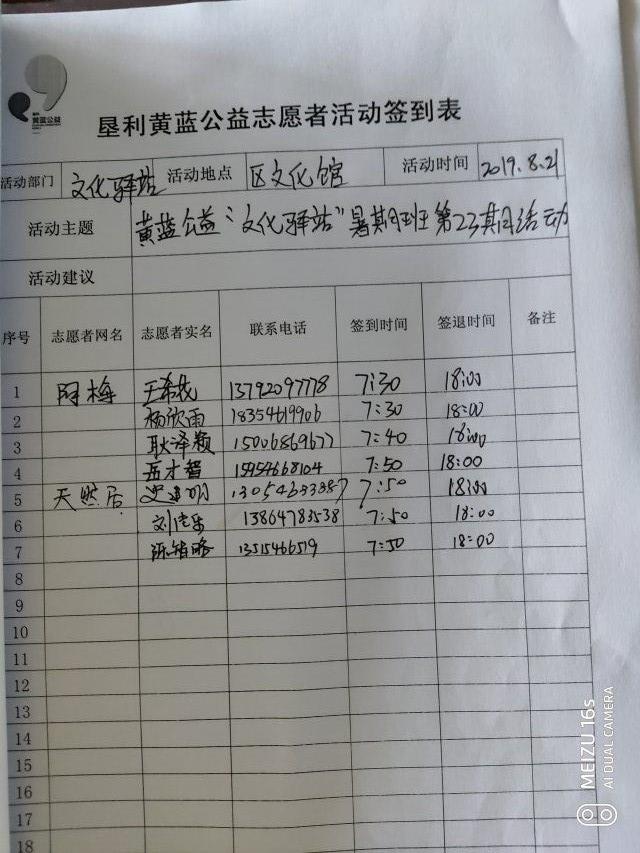 黄蓝公益
垦利黄蓝公益志愿者活动签到表
活动部门 文化驿站 活动地点 区文化馆 活动时间 2019.8.21
活动主题 黄蓝公益“文化驿站”暑期班第23期活动
活动建议
序号 志愿者网名 志愿者实名 联系电话 签到时间 签退时间 备注
1 阿梅 王希花 13792097778 7:30 18:00
2 杨欣雨 18354619906 7:30 18:00
3 耿泽颖 15006869677 7:40 18:00
4 岳才智 15954668104 7:50 18:00
5 天然居 13054633387 7:50 18:00
6 13864783538 7:50 18:00
7 13515466519 7:50 18:00
8
9
10
11
12
13
14
15
16
17
18
MEIZU 16s
AI DUAL CAMERA